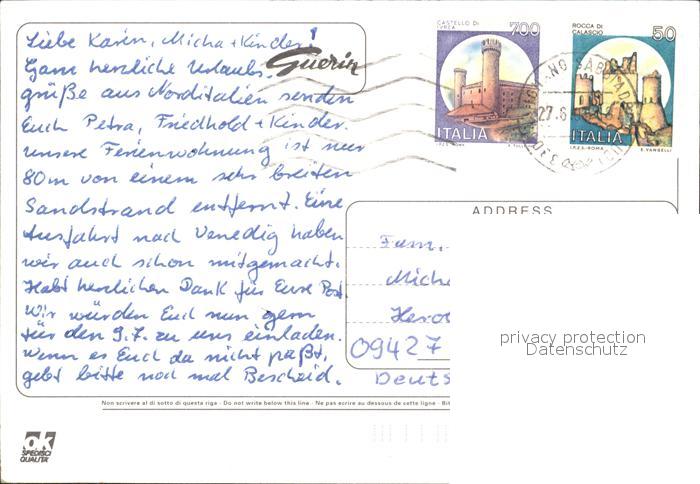 Liebe Karin, Micha + Kinder!
Guerin
Ganz herzliche Urlaubs-
grüße aus Norditalien senden
Euch Petra, Friedhold + Kinder.
unsere Ferienwohnung ist nur
80m von einem sehr breiten
Sandstrand entfernt. Eine
Ausfahrt nach Venedig haben
wir auch schon mitgemacht.
Habt herzlichen Dank für Eure Post
Wir würden Euch nun gern
für den 9.7. zu uns einladen.
Wenn es Euch da nicht paßt,
gebt bitte noch mal Bescheid.
CASTELLO DI IVREA 700
ITALIA
I.P.Z.S.-ROMA
ROCCA DI CALASCIO 50
ITALIA
I.P.Z.S.-ROMA E. VANGELLI
27.6
ADDRESS
Fam.
Miche
09427
Deuts
privacy protection
Datenschutz
Non scrivere al di sotto di questa riga - Do not write below this line - Ne pas ecrire au dessous de cette ligne - Bit
ok
SPEDISCI
QUALITA'